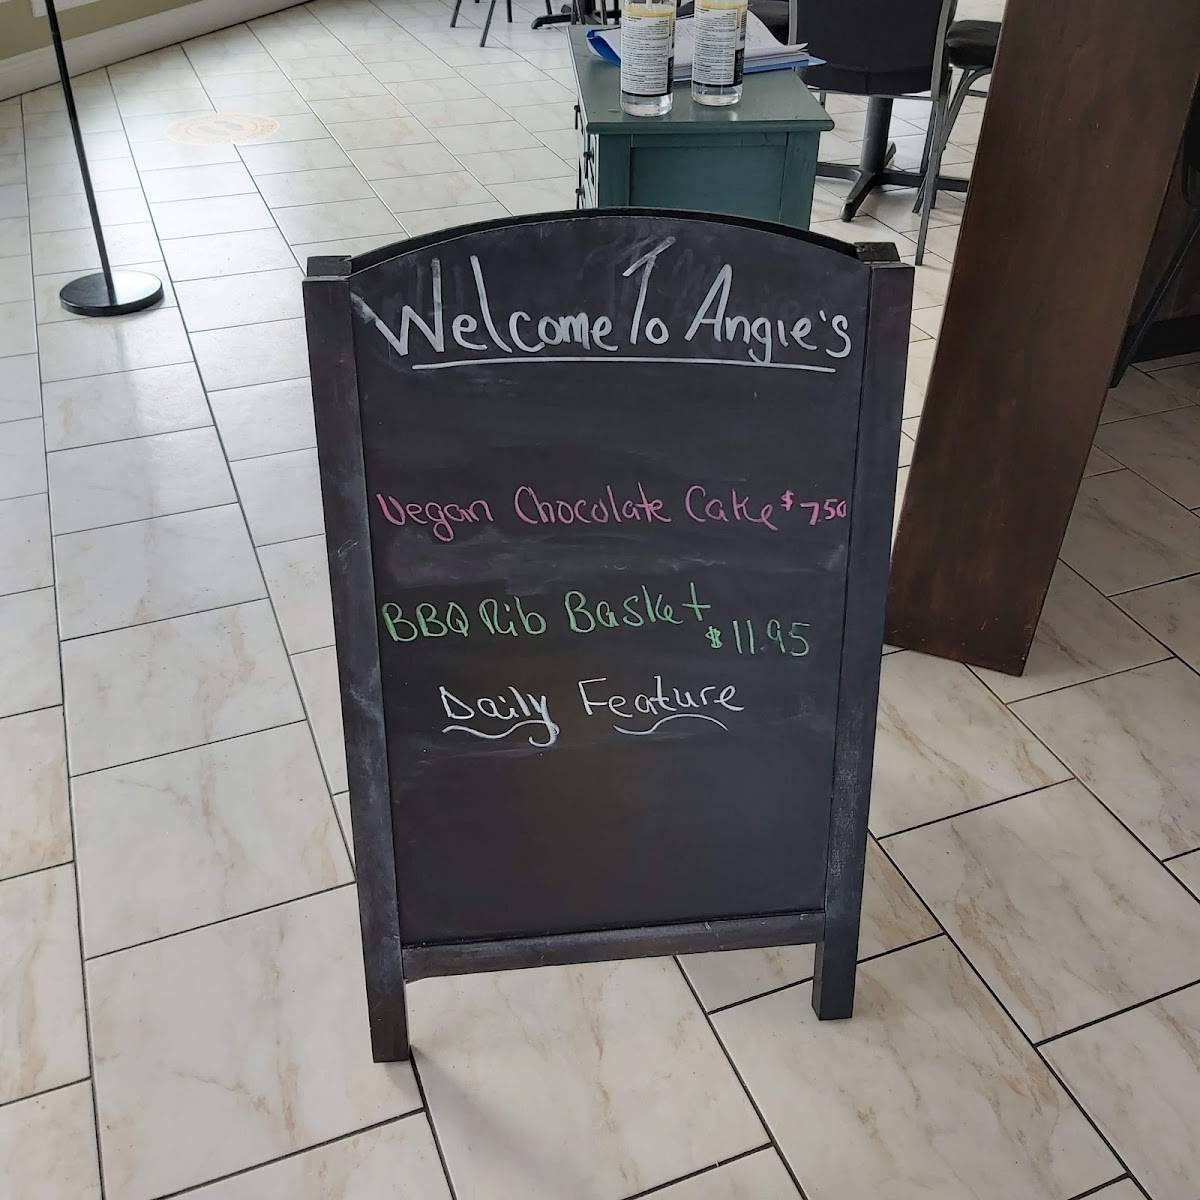 Welcome To Angie's
Vegan Chocolate Cake $7.50
BBQ Rib Basket
$11.95
Daily Feature